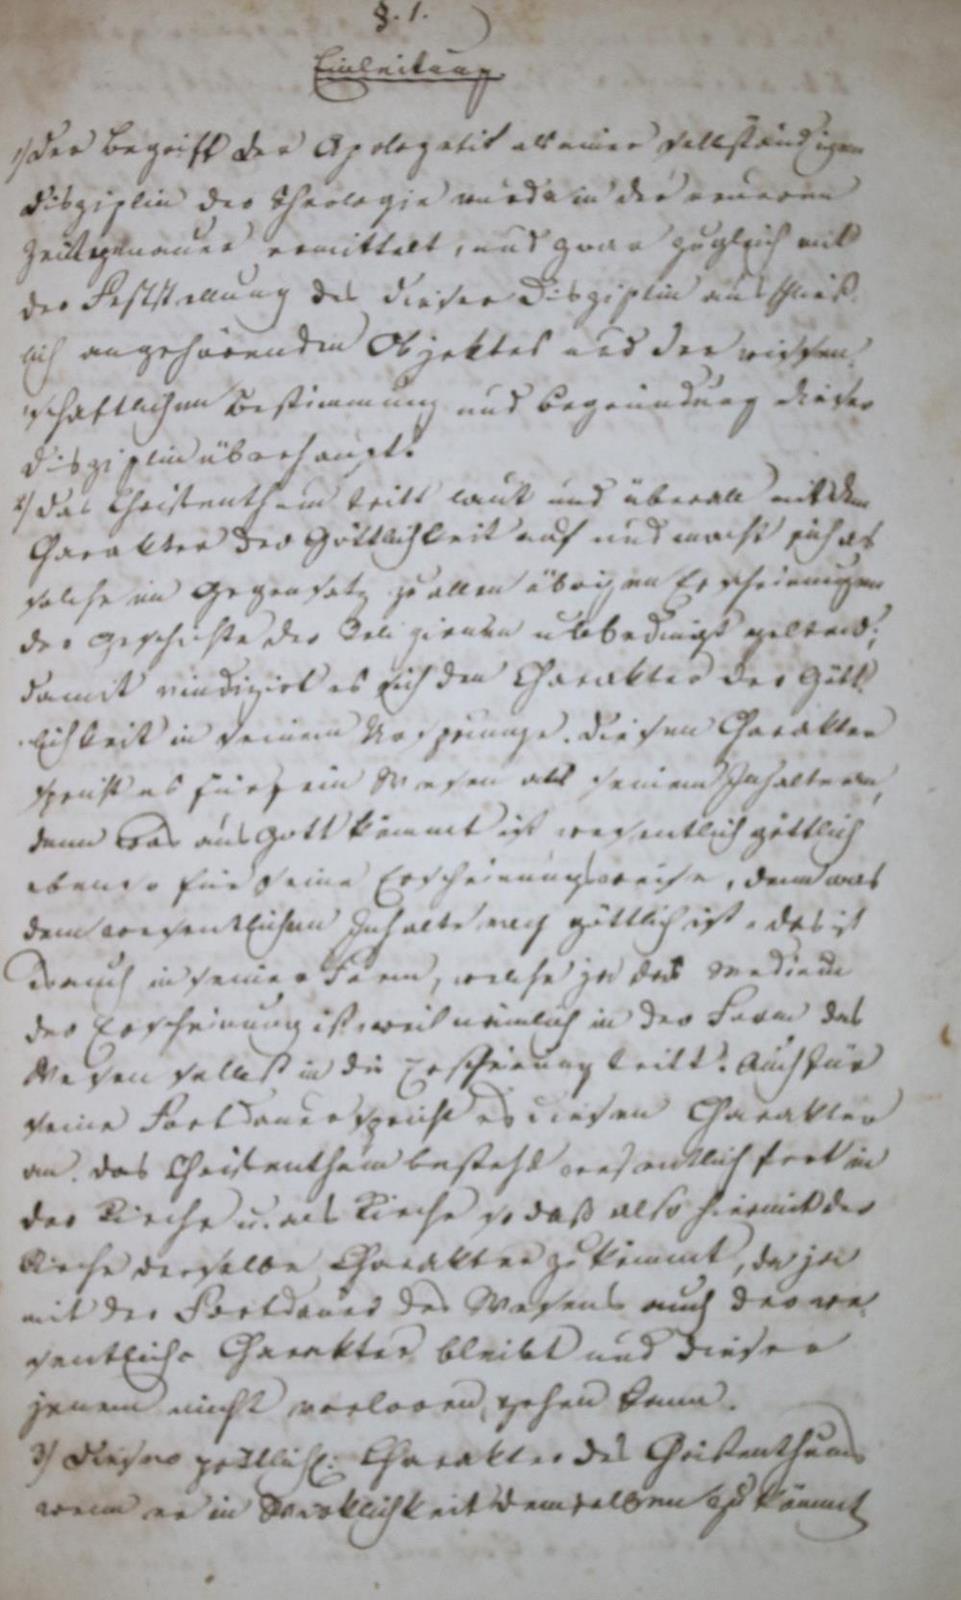 §. 1.
Einleitung.
1) Der Begriff der Apologetik als einer selbständigen
Disziplin der Theologie wurde in der neueren
Zeit genauer ermittelt, und zwar zugleich mit
der Feststellung des dieser Disziplin ausschließ-
lich angehörenden Objektes und der wissen-
schaftlichen Bestimmung und Begründung dieser
Disziplin überhaupt.
2) Das Christenthum tritt laut und überall mit dem
Charakter der Göttlichkeit auf und macht sich als
solche im Gegensatz zu allen übrigen Erscheinungen
der Geschichte der Religionen unbedingt geltend;
damit vindizirt es sich den Charakter der Gött-
lichkeit in seinem Ursprunge. Diesen Charakter
spricht es für sein Wesen als seinem Inhalte an,
denn was aus Gott kömmt ist wesentlich göttlich
ebenso für seine Erscheinungsweise, denn was
dem wesentlichen Inhalte nach göttlich ist, das ist
es auch in seiner Form, welche ja das Medium
der Erscheinung ist, weil nämlich in der Form das
Wesen selbst in die Erscheinung tritt. Auch für
seine Fortdauer spricht es diesen Charakter
an. Das Christenthum besteht wesentlich fort in
der Kirche u. als Kirche so daß also hiermit der
Kirche derselbe Charakter zukömmt, da ja
mit der Fortdauer des Wesens auch der we-
sentliche Charakter bleibt und dieser
jenem nicht verloren gehen kann.
3) Dieser göttliche Charakter des Christenthums
wenn er in Wirklichkeit demselben zukömmt